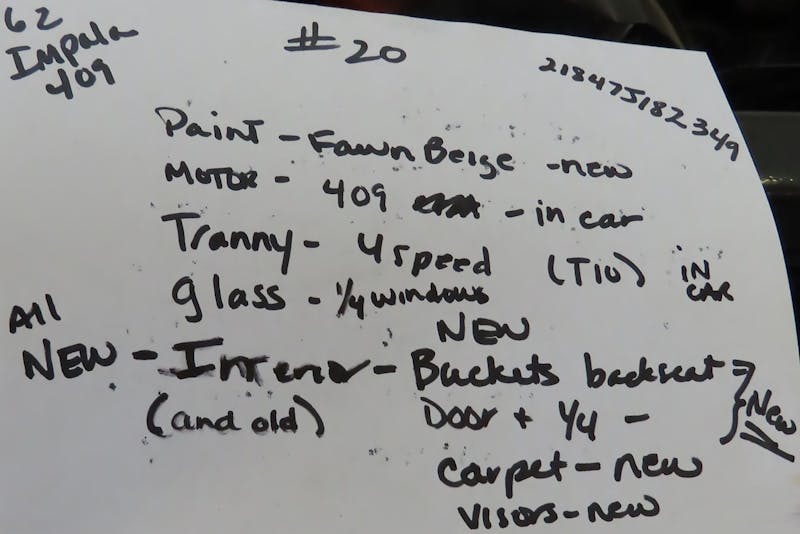 62
Impala
409
#20
21847J182349
Paint - Fawn Beige - new
Motor - 409 - in car
Tranny - 4 speed (T10) IN CAR
glass - 1/4 windows
All NEW - Interior - NEW Buckets backseat
(and old) Door + 1/4 - New
carpet - new
visors - new